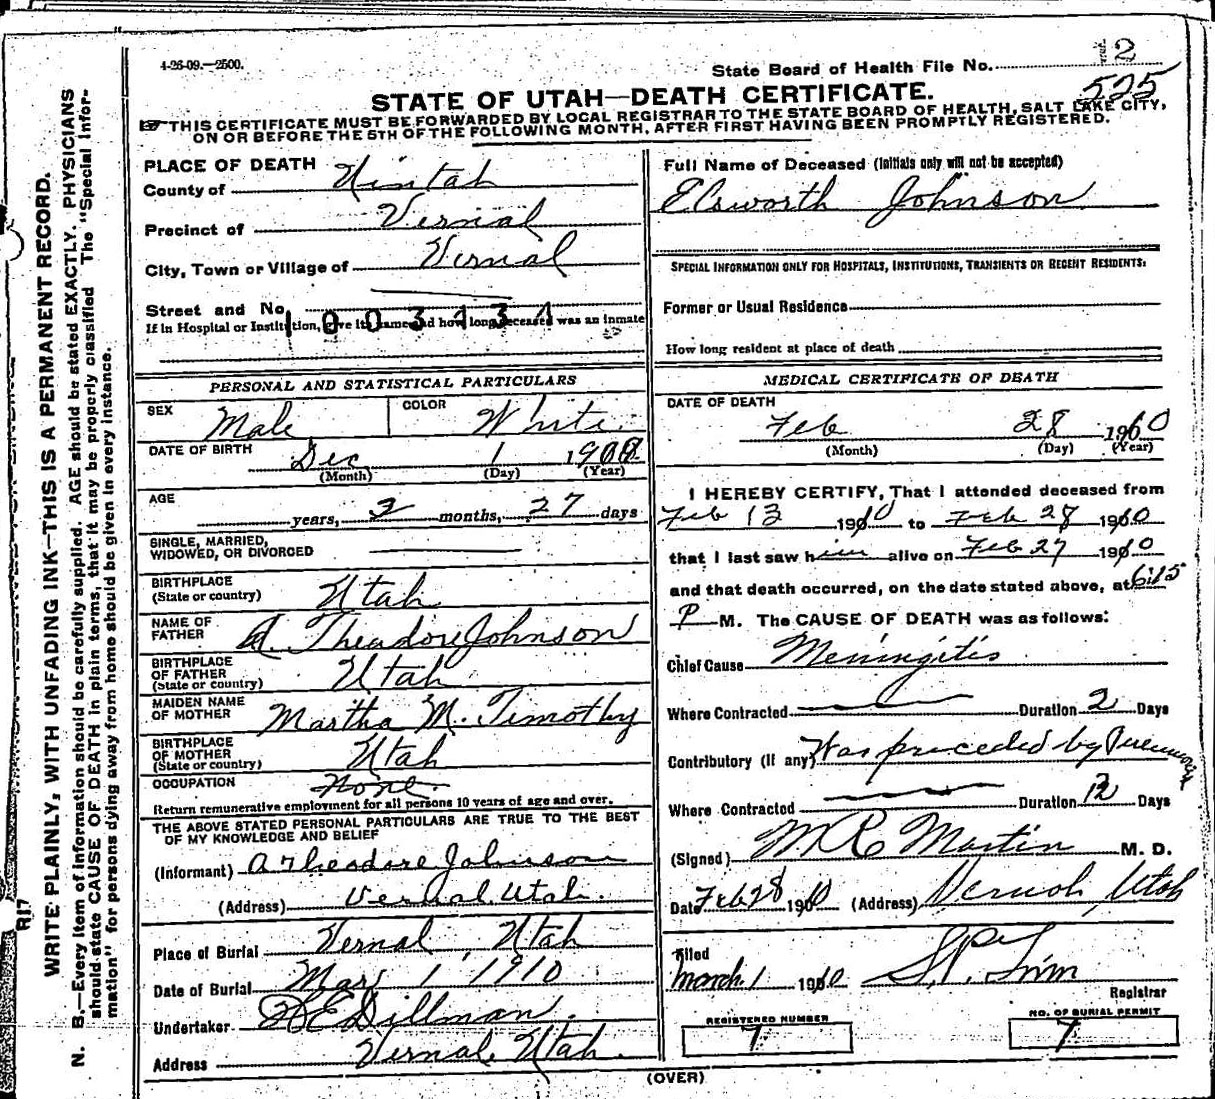 4-26-09.—2500.
State Board of Health File No. 12
525
STATE OF UTAH—DEATH CERTIFICATE.
THIS CERTIFICATE MUST BE FORWARDED BY LOCAL REGISTRAR TO THE STATE BOARD OF HEALTH, SALT LAKE CITY,
ON OR BEFORE THE 5TH OF THE FOLLOWING MONTH, AFTER FIRST HAVING BEEN PROMPTLY REGISTERED.
PLACE OF DEATH
County of Uintah
Precinct of Vernal
City, Town or Village of Vernal
Street and No.
If in Hospital or Institution, give its name and how long deceased was an inmate
PERSONAL AND STATISTICAL PARTICULARS
SEX Male COLOR White
DATE OF BIRTH Dec 1 1909
(Month) (Day) (Year)
AGE years, 2 months, 27 days
SINGLE, MARRIED,
WIDOWED, OR DIVORCED
BIRTHPLACE
(State or country) Utah
NAME OF
FATHER A. Theadore Johnson
BIRTHPLACE
OF FATHER
(State or country) Utah
MAIDEN NAME
OF MOTHER Martha M. Timothy
BIRTHPLACE
OF MOTHER
(State or country) Utah
OCCUPATION None
Return remunerative employment for all persons 10 years of age and over.
THE ABOVE STATED PERSONAL PARTICULARS ARE TRUE TO THE BEST
OF MY KNOWLEDGE AND BELIEF
(Informant) A Theodore Johnson
(Address) Vernal Utah.
Place of Burial Vernal, Utah
Date of Burial Mar 1 1910
Undertaker Dillman.
Address Vernal, Utah.
Full Name of Deceased (Initials only will not be accepted)
Elsworth Johnson
SPECIAL INFORMATION ONLY FOR HOSPITALS, INSTITUTIONS, TRANSIENTS OR RECENT RESIDENTS:
Former or Usual Residence
How long resident at place of death
MEDICAL CERTIFICATE OF DEATH
DATE OF DEATH
Feb 28 1910
(Month) (Day) (Year)
I HEREBY CERTIFY, That I attended deceased from
Feb 13 1910 to Feb 28 1910
that I last saw him alive on Feb 27 1910
and that death occurred, on the date stated above, at 6:15
P M. The CAUSE OF DEATH was as follows:
Chief Cause Meningitis
Where Contracted Duration 2 Days
Contributory (if any) Was preceded by Pneumonia
Where Contracted Duration 12 Days
(Signed) M R Martin M. D.
Date Feb 28 1910 (Address) Vernal, Utah
Filed
March 1 1910
Registrar
REGISTERED NUMBER
7
NO. OF BURIAL PERMIT
7
(OVER)
R17
WRITE PLAINLY, WITH UNFADING INK—THIS IS A PERMANENT RECORD.
N. B.—Every item of information should be carefully supplied. AGE should be stated EXACTLY. PHYSICIANS
should state CAUSE OF DEATH in plain terms, that it may be properly classified The "Special Infor-
mation" for persons dying away from home should be given in every instance.